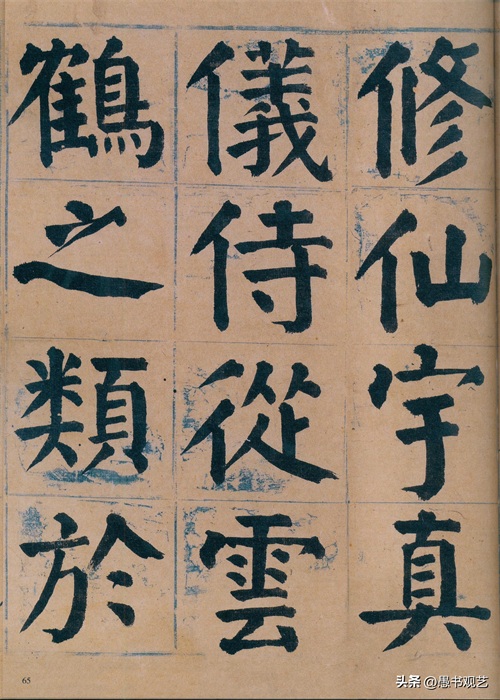 修仙宇真
儀侍從雲
鶴之類於
65
头条 @愚书观艺